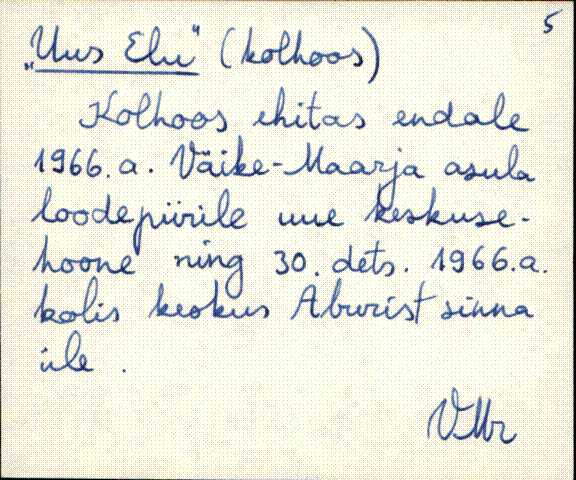 5
„Uus Elu" (kolhoos)
Kolhoos ehitas endale
1966.a. Väike-Maarja asula
loodepiirile uue keskuse-
hoone ning 30. dets. 1966.a.
kolis keskus Aburist sinna
üle.
VMr